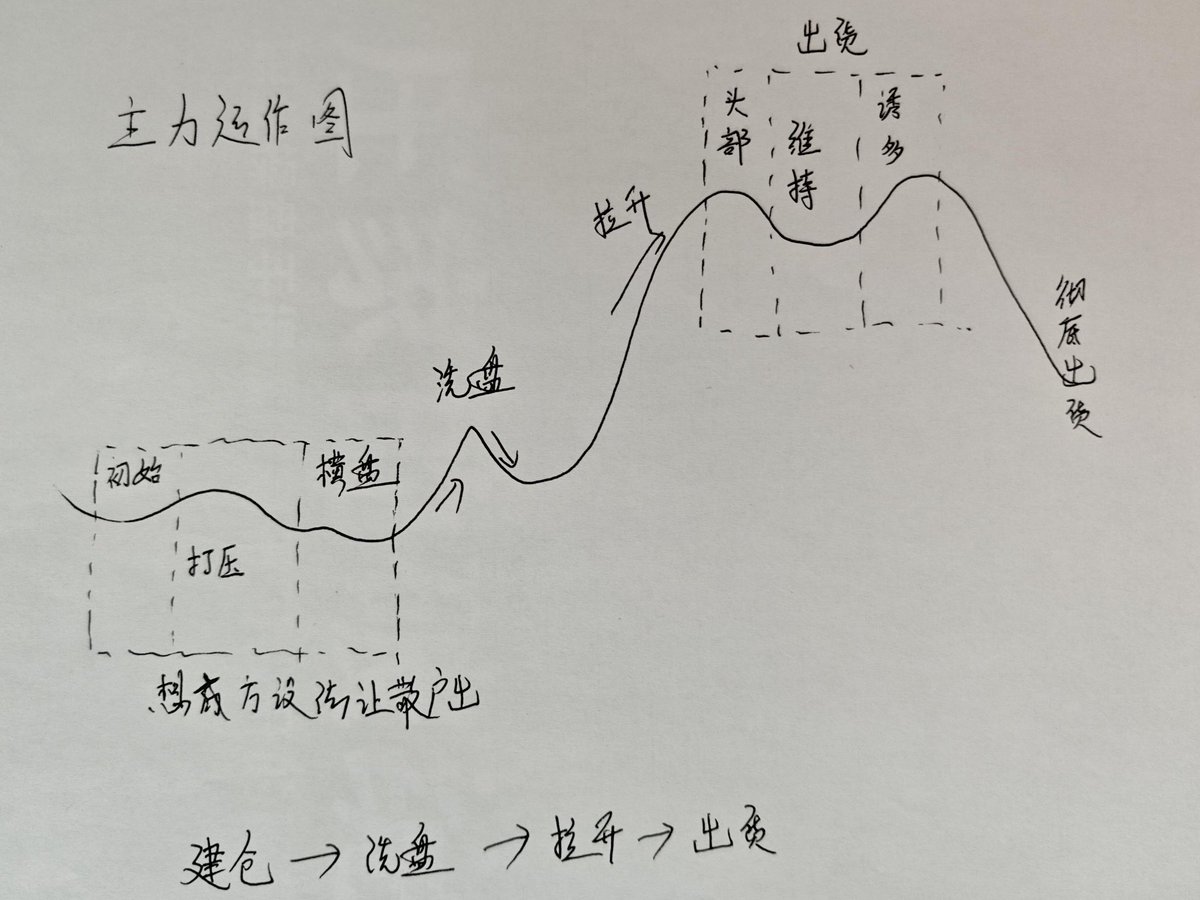 主力运作图
出货
头部
维持
诱多
拉升
彻底出货
洗盘
初始
横盘
打压
想成方设法让散户出
建仓→洗盘→拉升→出货